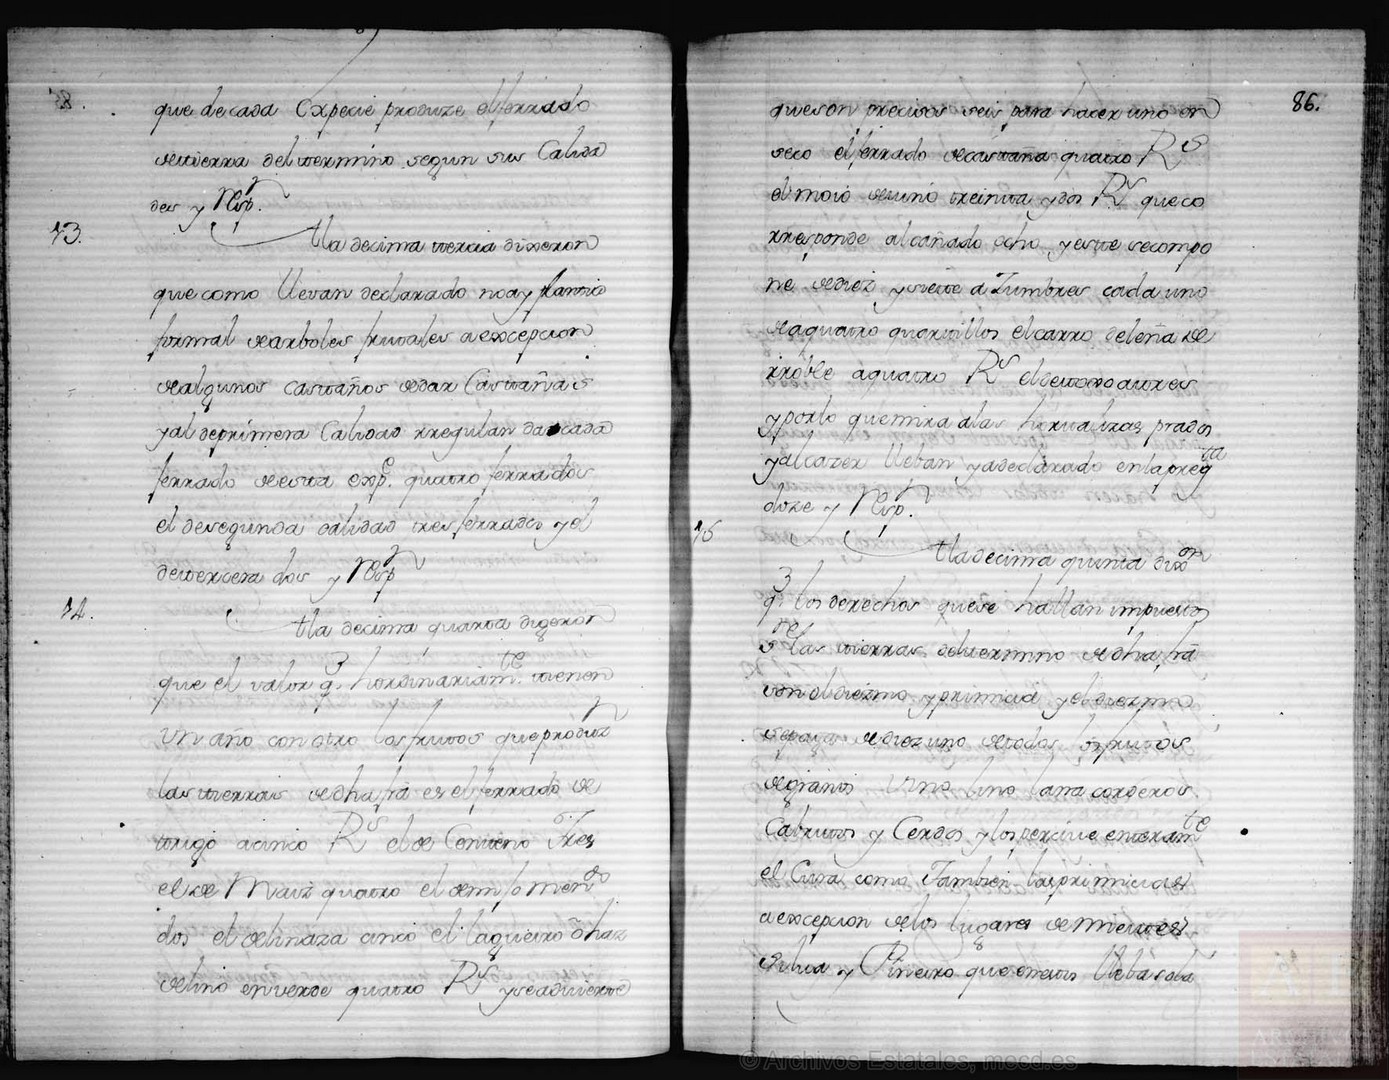 que decada Expecie produze elferrado
detierra deltermino segun sus Calida
des y Resp.n
13.
Ala decima tercia dixeron
quecomo llevan declarado noay plantio
formal dearboles frutales aexcepcion
dealgunos castaños dedar Castañas
yal deprimera Calidad rregulan dacada
ferrado deesta exp.e quatro ferrados
el desegunda calidad tres ferrados y el
detercera dos y Resp.n
14.
Ala decima quarta digeron
que el valor q. hordinariam.te tienen
Un año con otro los frutos queproduz.n
las tierras dedha fra es el ferrado de
trigo acinco R.s elde Centeno Tres
el de Maiz quatro el demijo men.do
dos el delinaza cinco el laqueiro o haz
delino enverde quatro R.s yseadvierte
86.
queson precisos seis para hacer uno en
seco elferrado decastaña quatro R.s
el moio devino treinta ydos R.s queco
rresponde alcañado ocho yeste secompo
ne dediez ysiete a Zumbres cada uno
deaquatro quartillos elcarro deleña de
rroble aquatro R.s eldetoxo atres
yporlo quemira alas hortalizas prados
yalcazer lleban yadeclarado enlapreg.ta
doze y Resp.n
15
Ala decima quinta dix.on
q. los derechos quese hallan impuestos
las tierras deltermino dedha fra
son eldiezmo yprimicia yeldiezmo
sepaga dediez uno detodos frutos
degranos Vino lino lana corderos
Cabritos y Cerdos ylospercive enteram.te
el Cura como Tambien lasprimicias
aexcepcion delos lugares de
Silva y Piñeiro que enestos lleba sola
© Archivos Estatales, mecd.es